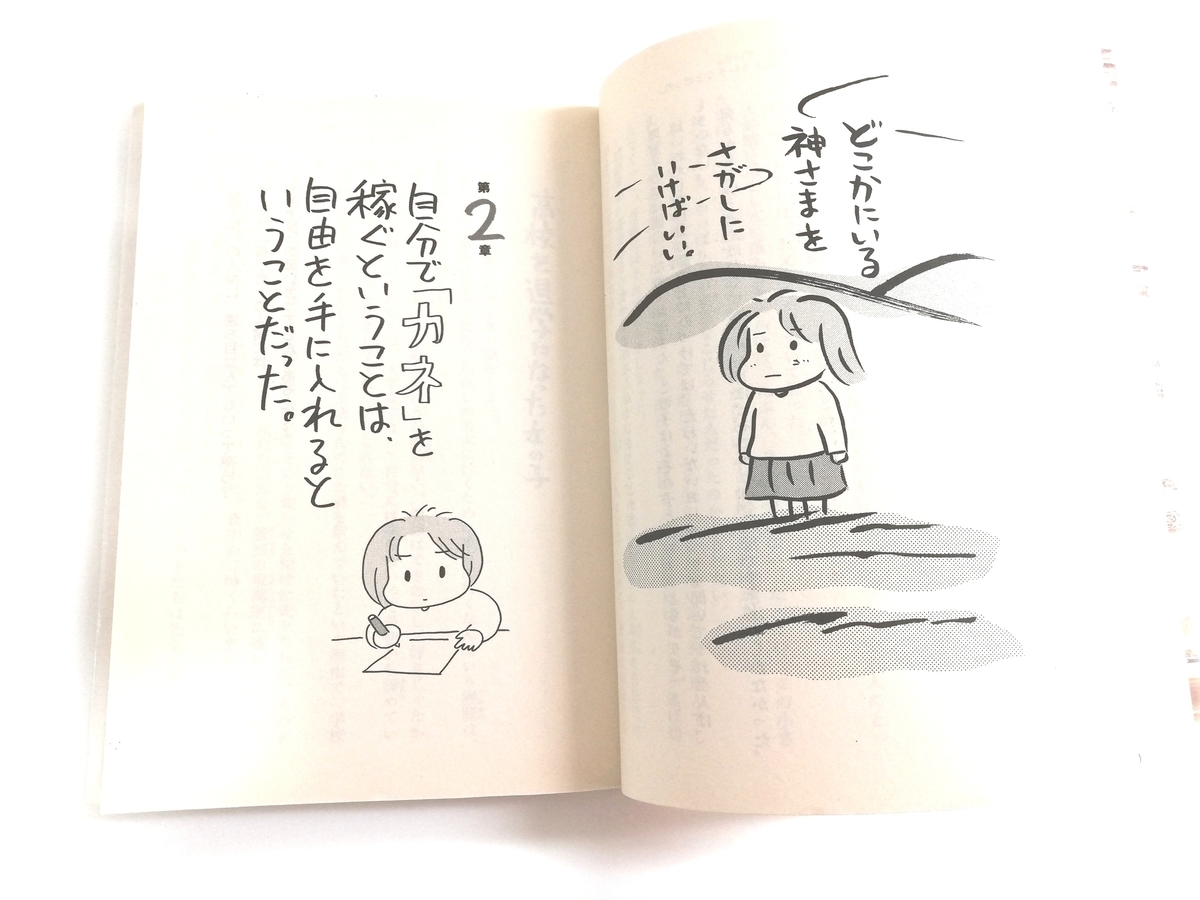 どこかにいる
神さまを
さがしに
いけばいい。
第2章
自分で「カネ」を
稼ぐということは、
自由を手に入れると
いうことだった。